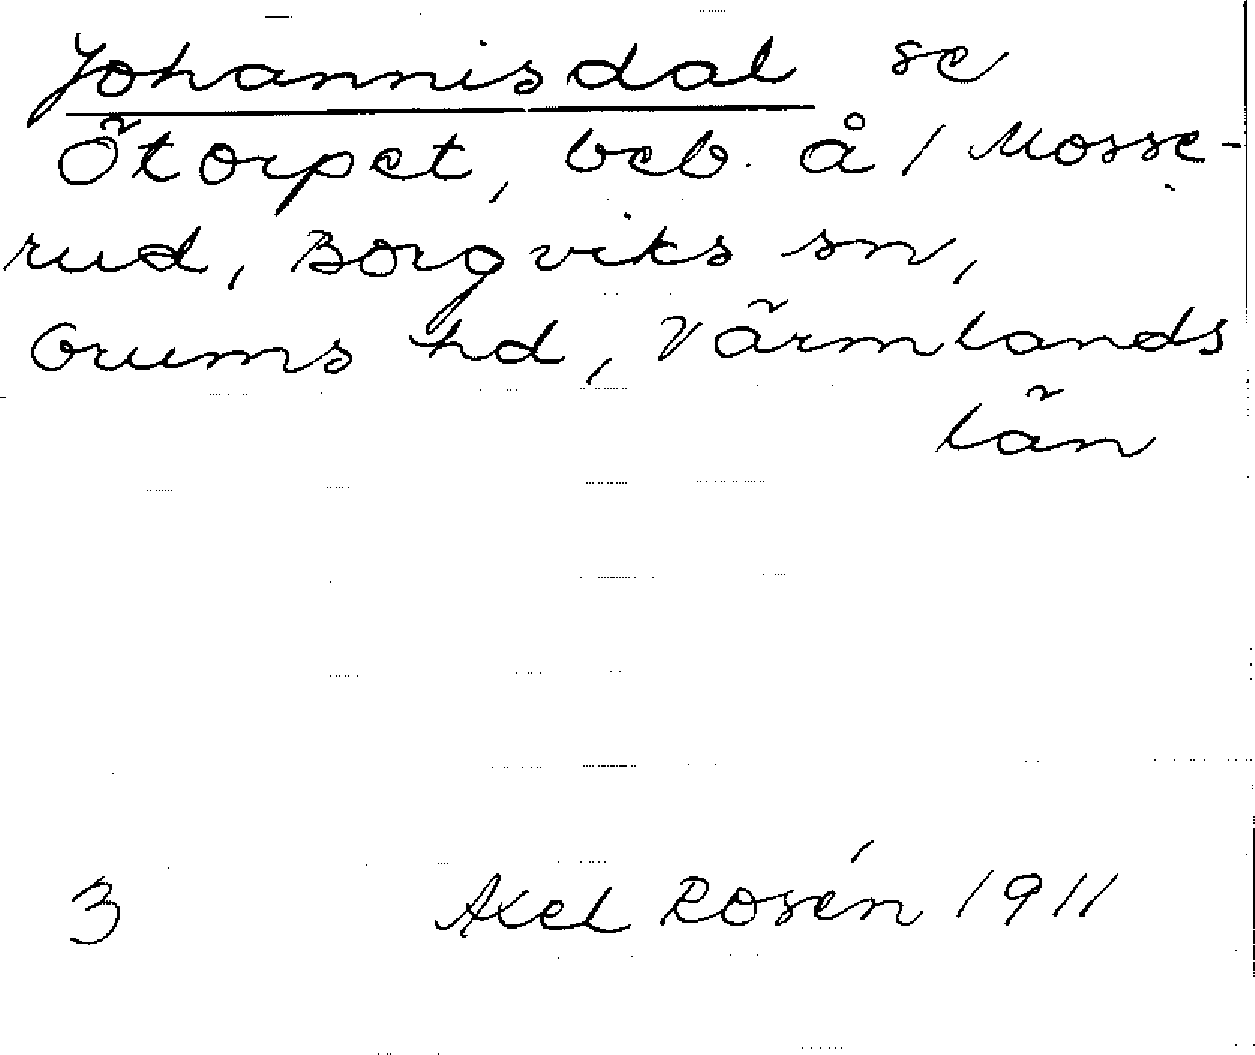 Johannisdal se
Ötorpet, beb. å 1 Mosse-
rud, Borgviks sn,
Grums hd, Värmlands
län
3 Axel Rosén 1911